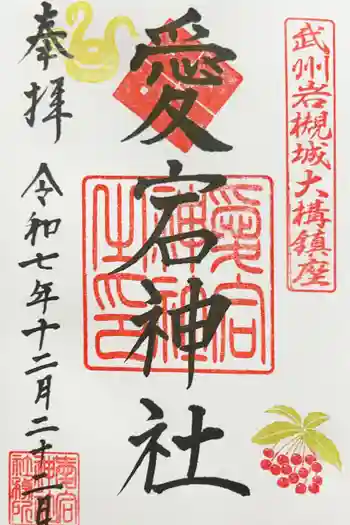 武州岩槻城大構鎮座
愛宕神社
愛宕神社之印
奉拝
令和七年十二月二十二日
愛宕神社社務所